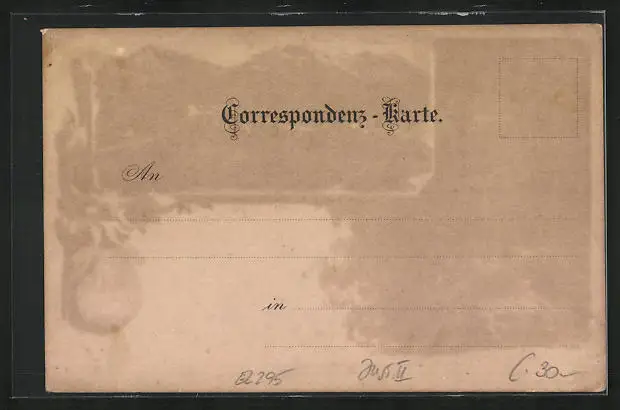 Correspondenz-Karte.
An
in
EL295
C. 30-